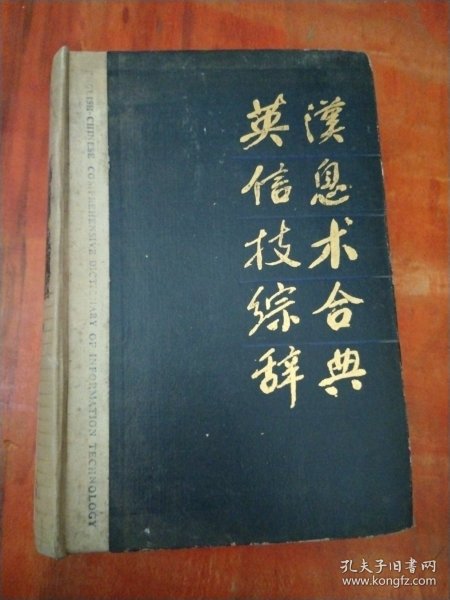 英漢
信息
技术
綜合
辞典
ENGLISH-CHINESE COMPREHENSIVE DICTIONARY OF INFORMATION TECHNOLOGY
孔夫子旧书网
www.kongfz.com